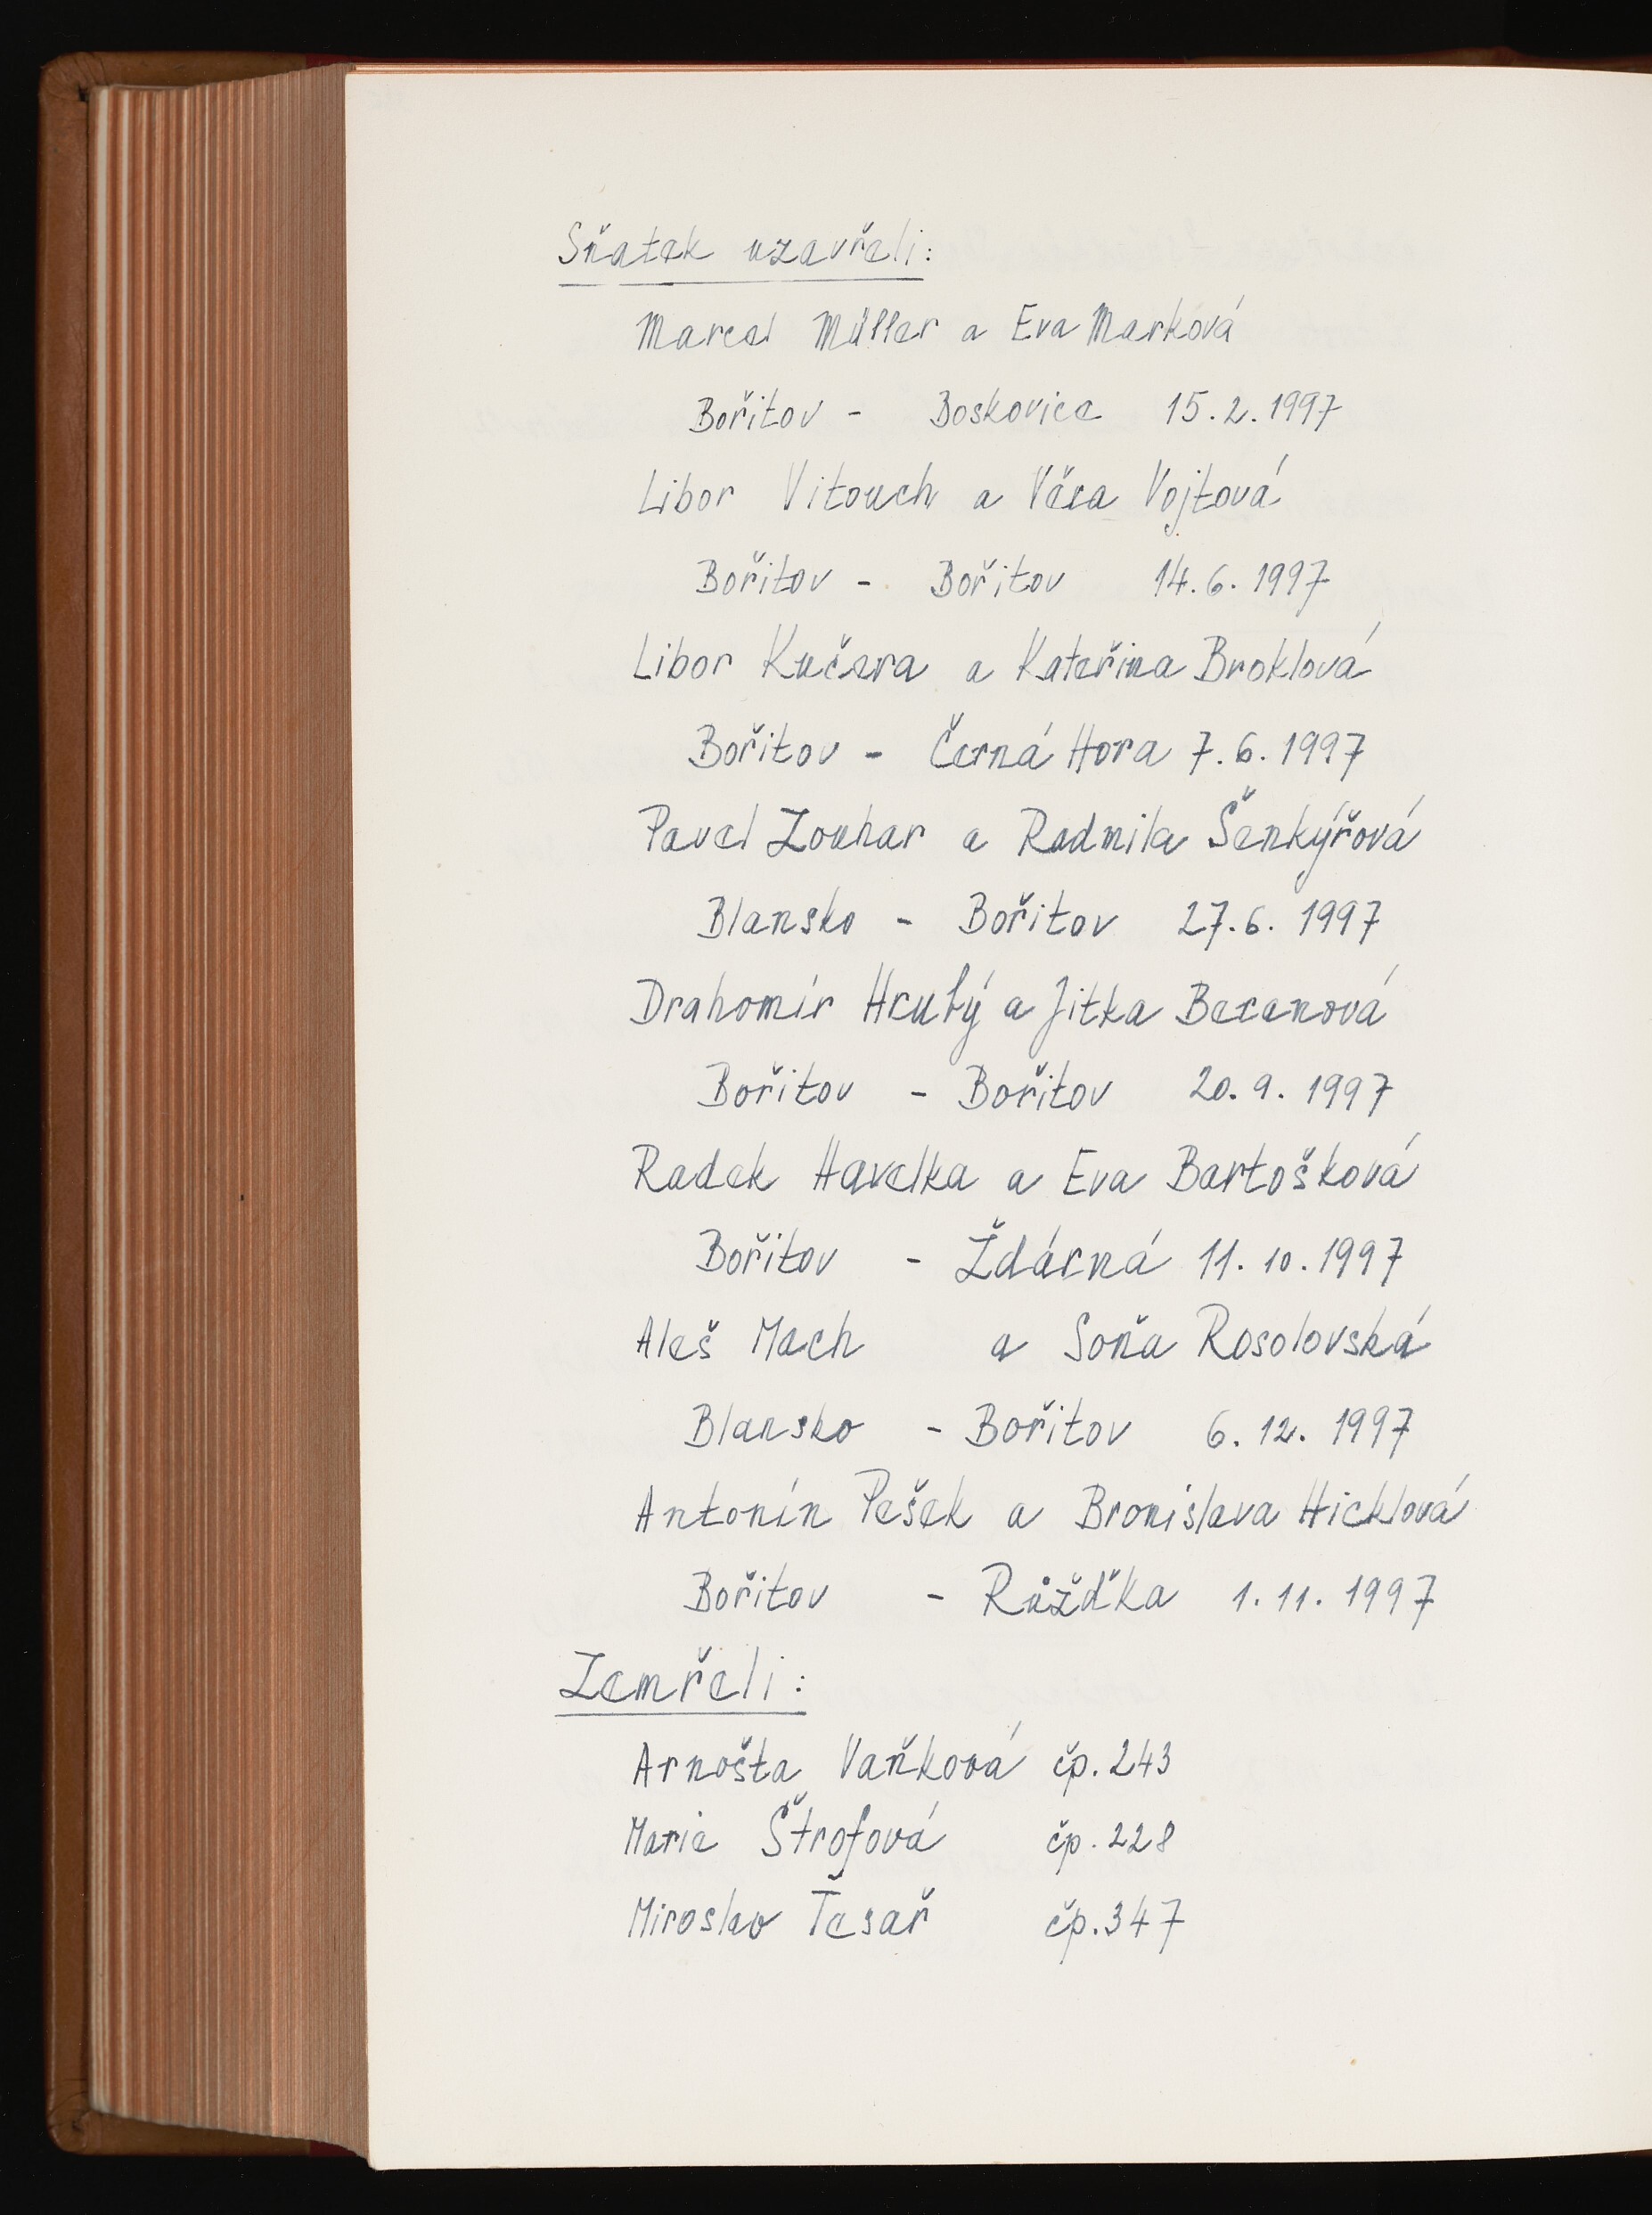 Sňatek uzavřeli:
Marcel Müller a Eva Marková
Bořitov - Boskovice 15.2.1997
Libor Vitouch a Věra Vojtová
Bořitov - Bořitov 14.6.1997
Libor Kučera a Kateřina Broklová
Bořitov - Černá Hora 7.6.1997
Pavel Zouhar a Radmila Šenkýřová
Blansko - Bořitov 27.6.1997
Drahomír Hrubý a Jitka Beranová
Bořitov - Bořitov 20.9.1997
Radek Havelka a Eva Bartošková
Bořitov - Žďárná 11.10.1997
Aleš Mach a Soňa Rosolovská
Blansko - Bořitov 6.12.1997
Antonín Pešek a Bronislava Hicklová
Bořitov - Růžďka 1.11.1997
Zemřeli:
Arnošta Vaňková čp.243
Marie Štrofová čp.228
Miroslav Tesař čp.347